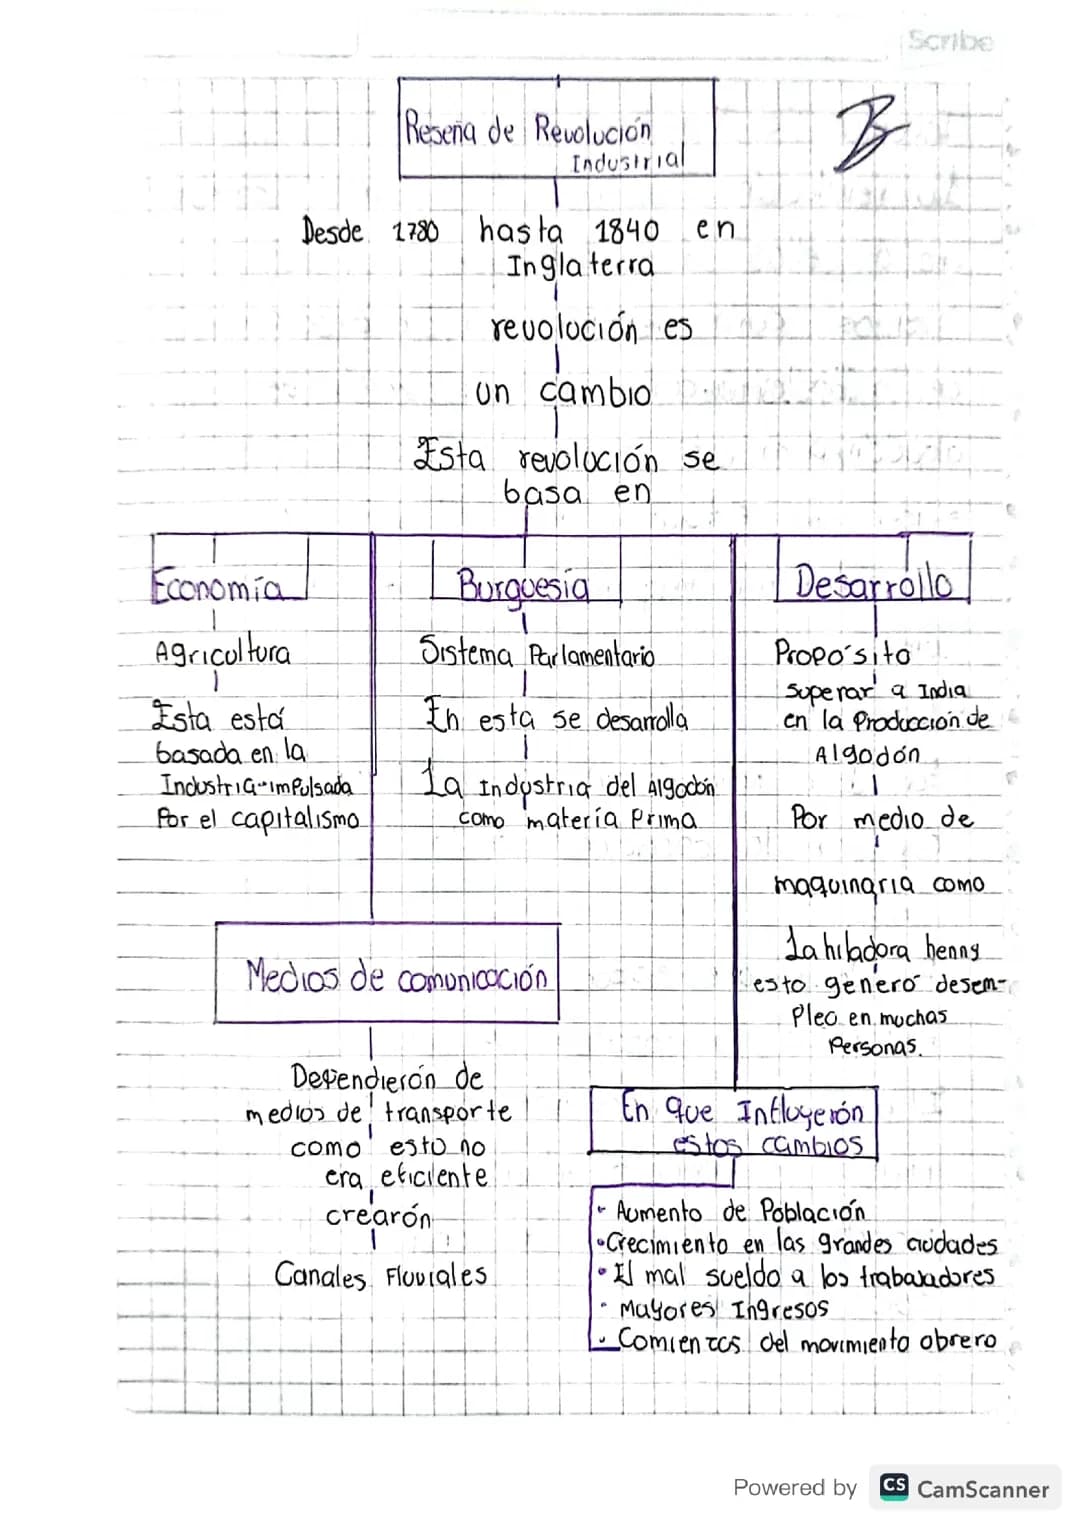 Scribe
Reseña de Revolución
Industrial
Desde 1780 hasta 1840 en
Inglaterra
revolución es
un cambio
Esta revolución se
basa en
Economía
Agricultura
Esta está
basada en la
Industria impulsada
Por el capitalismo
Burguesía
Sistema Parlamentario
En esta se desarrolla
La Industria del Algodón
como matería Prima
Desarrollo
Propósito
superar a India
en la Producción de
Algodón
Por medio de
maquinaria como
La hiladora henny
esto género desem-
pleo en muchas
Personas.
Medios de comunicación
Defendierón de
medios de transporte
como esto no
era eficiente
crearón
Canales Fluviales
En que Influyerón
estos cambios
- Aumento de Población
• Crecimiento en las grandes ciudades
• El mal sueldo a los trabajadores
• Mayores Ingresos
• Comienzos del movimiento obrero
Powered by CS CamScanner